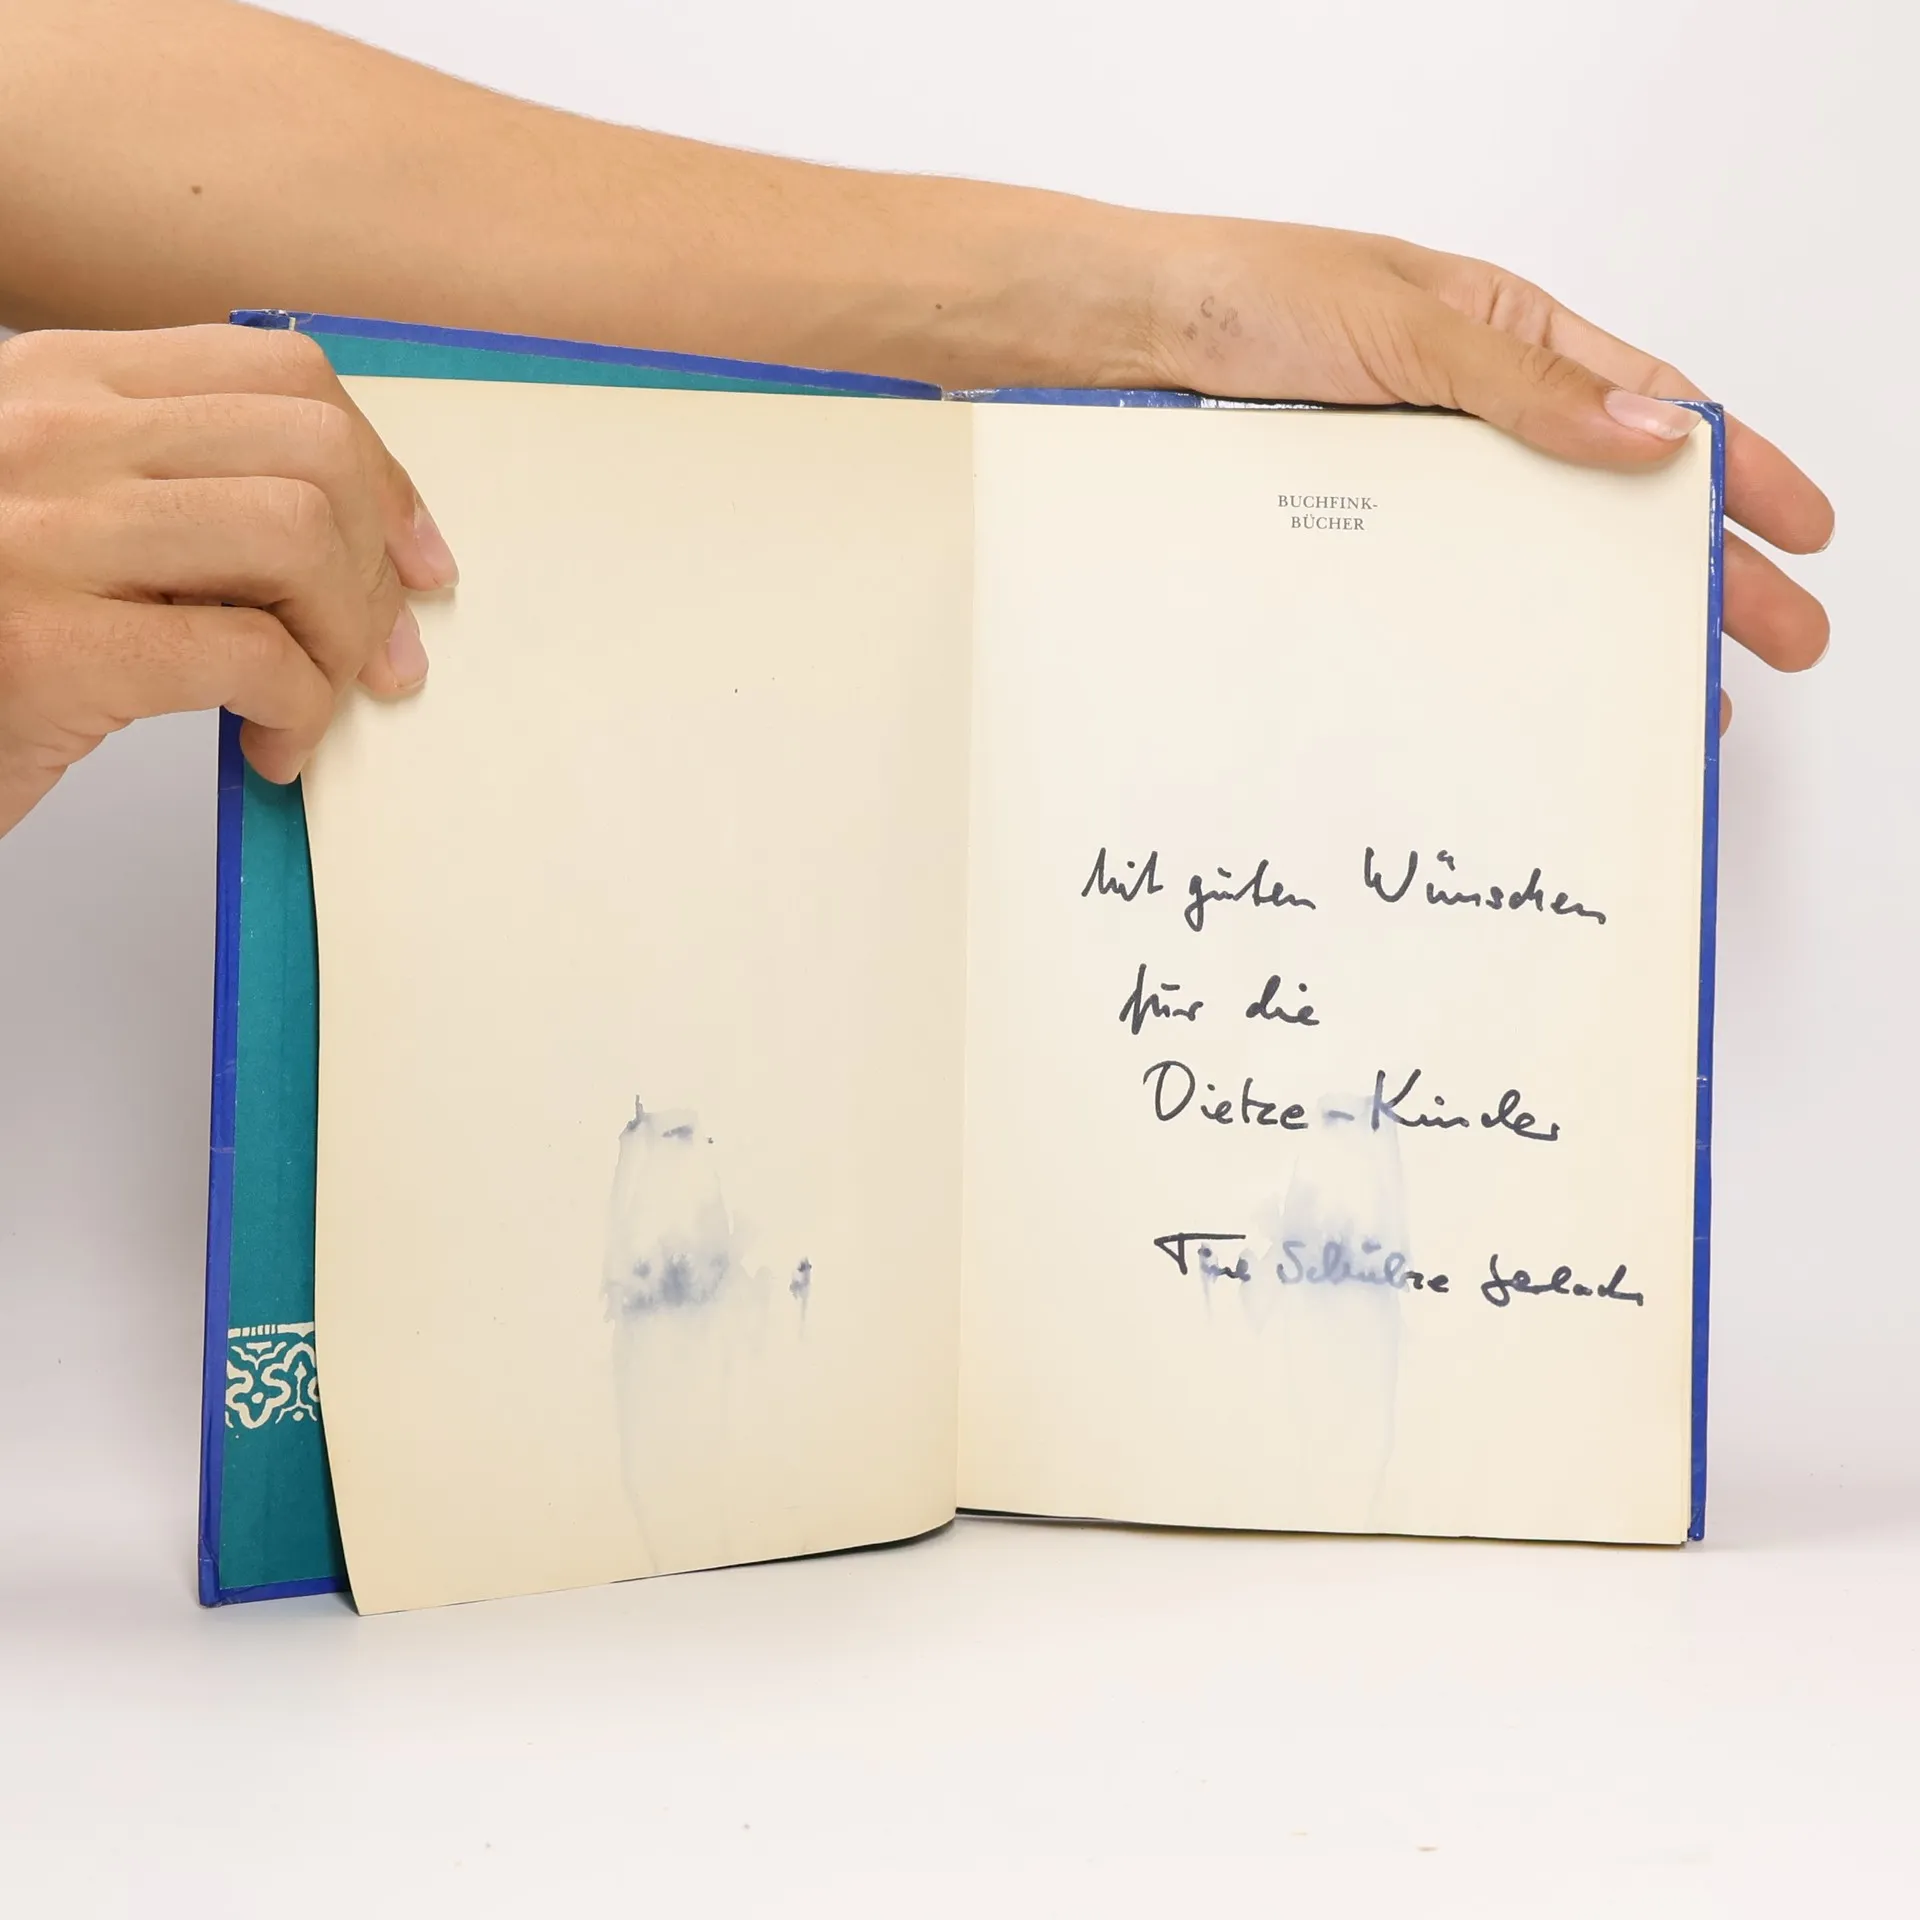 BUCHFINK-
BÜCHER
Mit guten Wünschen
für die
Dietze-Kinder
Tine Schulze Gerlach